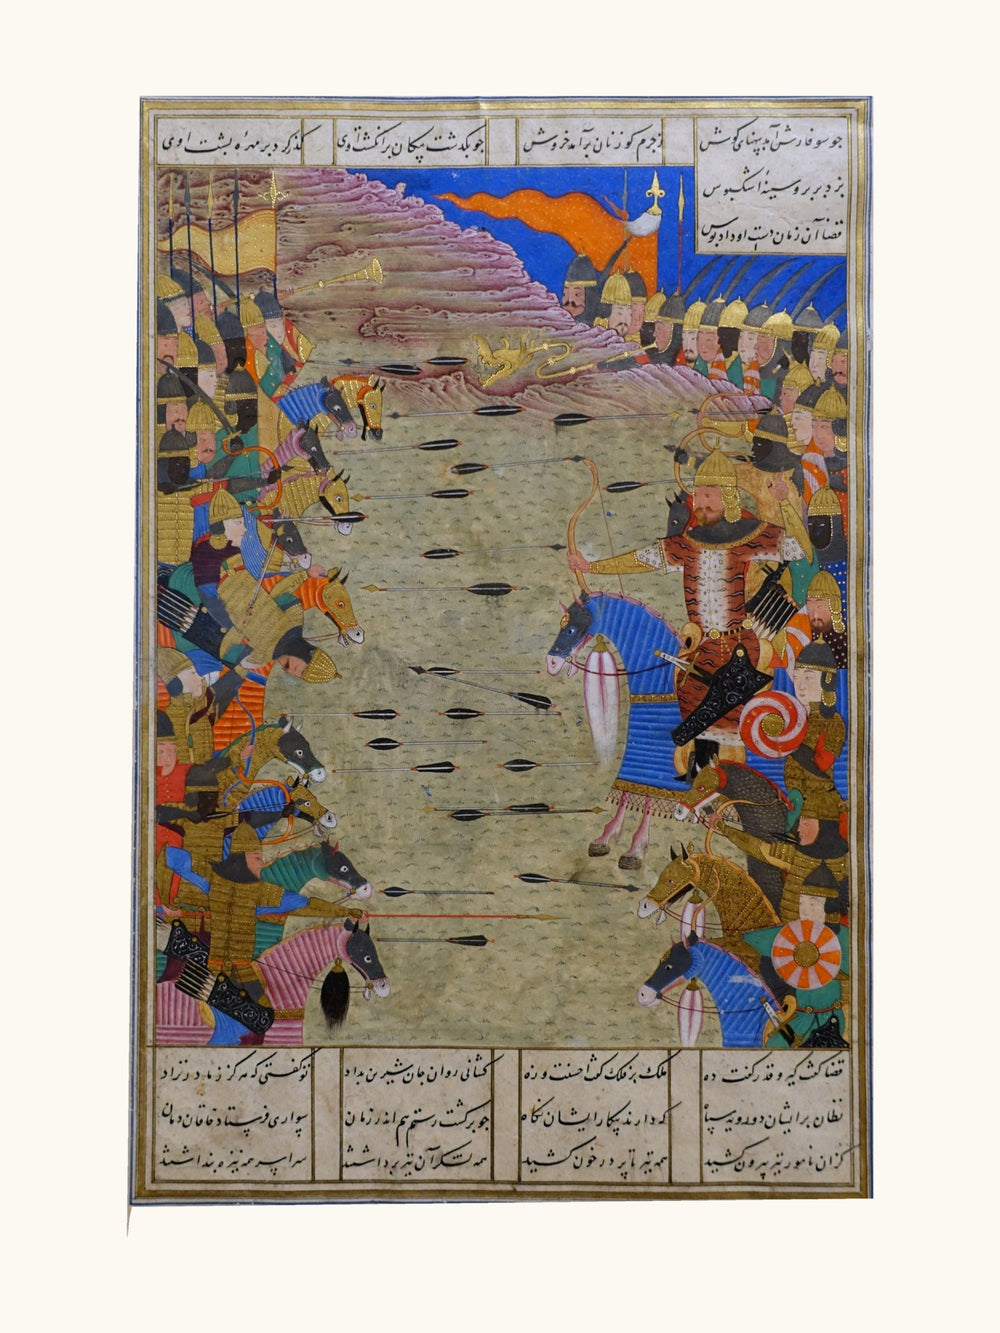 جو سوفارش آمد بپهنای کوش ز جرم کوزنان برآمد خروش جو بکذشت پیکان بر انکشت اوی کذر کرد بر مهره پشت اوی
بزد بر بر و سینهٔ اشکبوس
قضا آن زمان دست او داد بوس
قضا کفت کیر و قدر کفت ده ملک بر فلک کفت احسنت وزه کشانی روان جان شیرین بداد تو کفتی که هرکز ز مادر نزاد
نظاره برایشان دو رویه سپاه که دارند پیکار ایشان نکاه جو برکشت رستم هم اندر زمان سواری فرستاد خاقان دمان
کزان نامور تیر بیرون کشید همه تیر تا پر در خون کشید همه لشکر آن تیر برداشتند سراسر همه نیزه بنداشتند